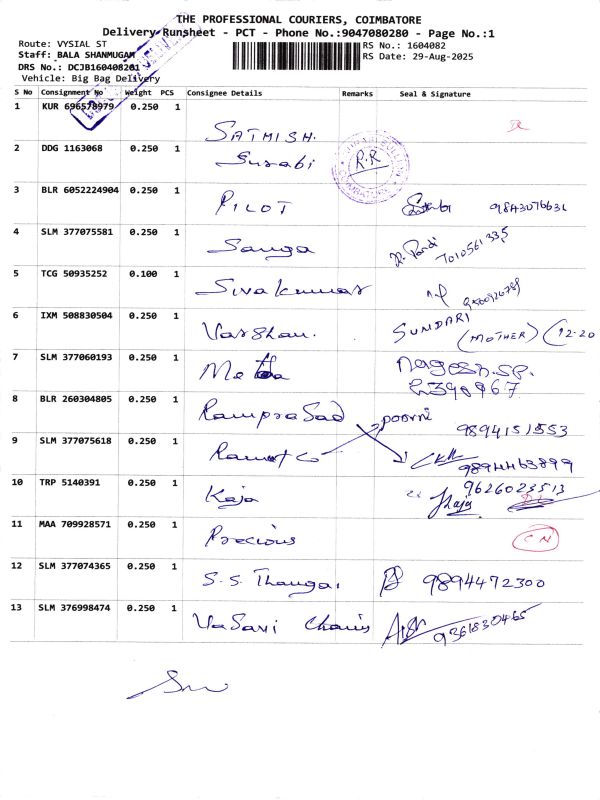 THE PROFESSIONAL COURIERS, COIMBATORE
Delivery Runsheet - PCT - Phone No.:9047080280 - Page No.:1
Route: VYSIAL ST
RS No.: 1604082
Staff: BALA SHANMUGAM
RS Date: 29-Aug-2025
DRS No.: DCJB160408201
Vehicle: Big Bag Delivery
S No Consignment No Weight PCS Consignee Details Remarks Seal & Signature
1 KUR 696578979 0.250 1 SATHISH.
2 DDG 1163068 0.250 1 Surabi R.R
3 BLR 6052224904 0.250 1 PILOT 9843076631
4 SLM 377075581 0.250 1 Sanga 7010561335
5 TCG 50935252 0.100 1 Sivakumar
6 IXM 508830504 0.250 1 Varshan. SUNDARI (MOTHER) (12-20
7 SLM 377060193 0.250 1 Nagesh.SP.
8 BLR 260304805 0.250 1 Ramprasad poorni 9894151553
9 SLM 377075618 0.250 1 9894463899
10 TRP 5140391 0.250 1 Kaja 9626023513
11 MAA 709928571 0.250 1 Precious CN
12 SLM 377074365 0.250 1 S.S. Thangai 9894472300
13 SLM 376998474 0.250 1 Vasavi 9361830465